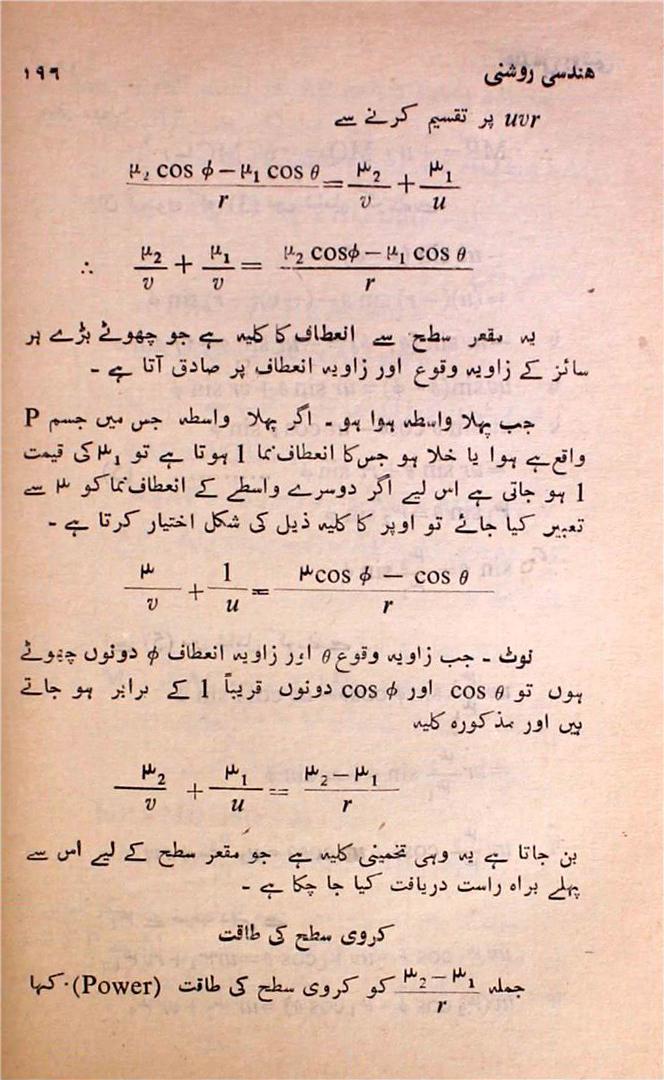 ہندسی روشنی ۱۹۶
uvr پر تقسیم کرنے سے
(μ₂ cos φ − μ₁ cos θ)/r = μ₂/v + μ₁/u
∴ μ₂/v + μ₁/v = (μ₂ cosφ − μ₁ cos θ)/r
یہ مقعر سطح سے انعطاف کا کلیہ ہے جو چھوٹے بڑے ہر
سائز کے زاویہ وقوع اور زاویہ انعطاف پر صادق آتا ہے ۔
جب پہلا واسطہ ہوا ہو ۔ اگر پہلا واسطہ جس میں جسم P
واقع ہے ہوا یا خلا ہو جس کا انعطاف نما 1 ہوتا ہے تو μ₁ کی قیمت
1 ہو جاتی ہے اس لیے اگر دوسرے واسطے کے انعطاف نما کو μ سے
تعبیر کیا جائے تو اوپر کا کلیہ ذیل کی شکل اختیار کرتا ہے ۔
μ/v + 1/u = (μcos φ − cos θ)/r
نوٹ ۔ جب زاویہ وقوع θ اور زاویہ انعطاف φ دونوں چھوٹے
ہوں تو cos θ اور cos φ دونوں قریباً 1 کے برابر ہو جاتے
ہیں اور مذکورہ کلیہ
μ₂/v + μ₁/u = (μ₂ − μ₁)/r
بن جاتا ہے یہ وہی تخمینی کلیہ ہے جو مقعر سطح کے لیے اس سے
پہلے براہ راست دریافت کیا جا چکا ہے ۔
کروی سطح کی طاقت
جملہ (μ₂ − μ₁)/r کو کروی سطح کی طاقت (Power) کہا